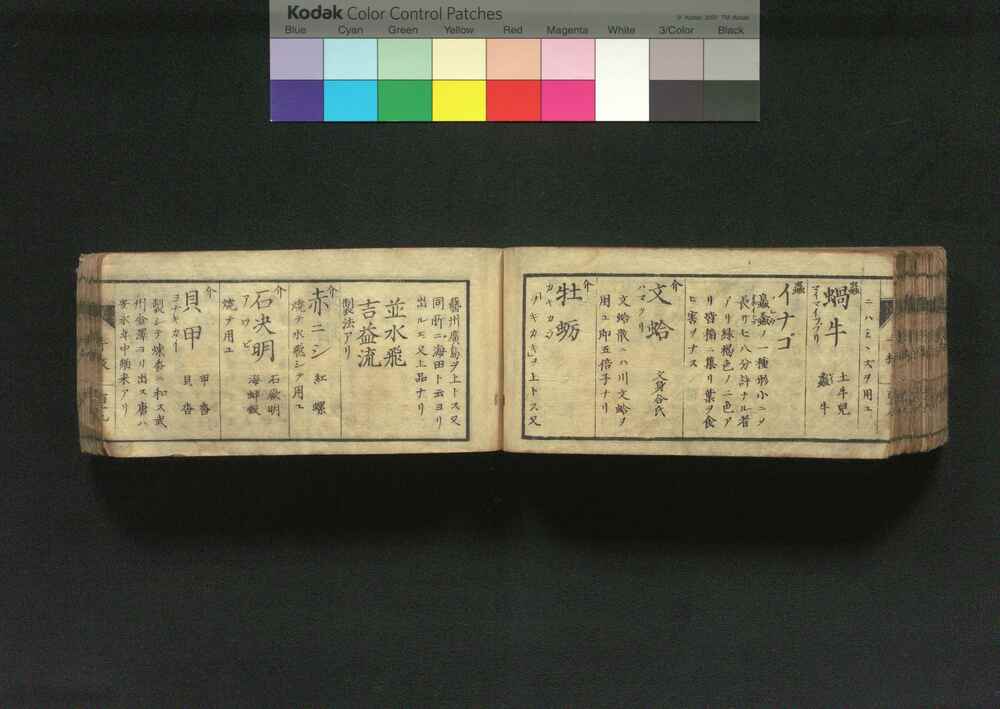 Kodak Color Control Patches
Blue Cyan Green Yellow Red Magenta White 3/Color Black
蟲
蝸牛
マイマイツブリ
土牛兒
蠡牛
蟲
イナゴ
螽蟲ノ一種形小ニシ
長サ七八分許ナル者
ノリ緑褐色ノ二色ア
リ皆稲ニ集リ葉ヲ食
ヒ害ヲナス
介
文蛤
ハマグリ
文蛤散ニハ川文蛤ヲ
用ユ即五倍子ナリ
介
牡蛎
カキカラ
カキヲ上トス又
藝州廣島ヲ上トス又
同所ニ海田ト云ヨリ
出ルモ又上品ナリ
並水飛
吉益流
製法アリ
介
赤ニシ
紅螺
燒テ水飛シテ用ユ
介
石决明
アワビ
石厥明
燒テ用ユ
介
貝甲
甲香
貝香
製シテ煉香ニ和ス武
州金澤ヨリ出ス唐ハ
安永年中舶来アリ